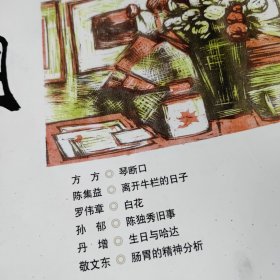 方 方 ◎ 琴断口
陈集益 ◎ 离开牛栏的日子
罗伟章 ◎ 白花
孙 郁 ◎ 陈独秀旧事
丹 增 ◎ 生日与哈达
敬文东 ◎ 肠胃的精神分析